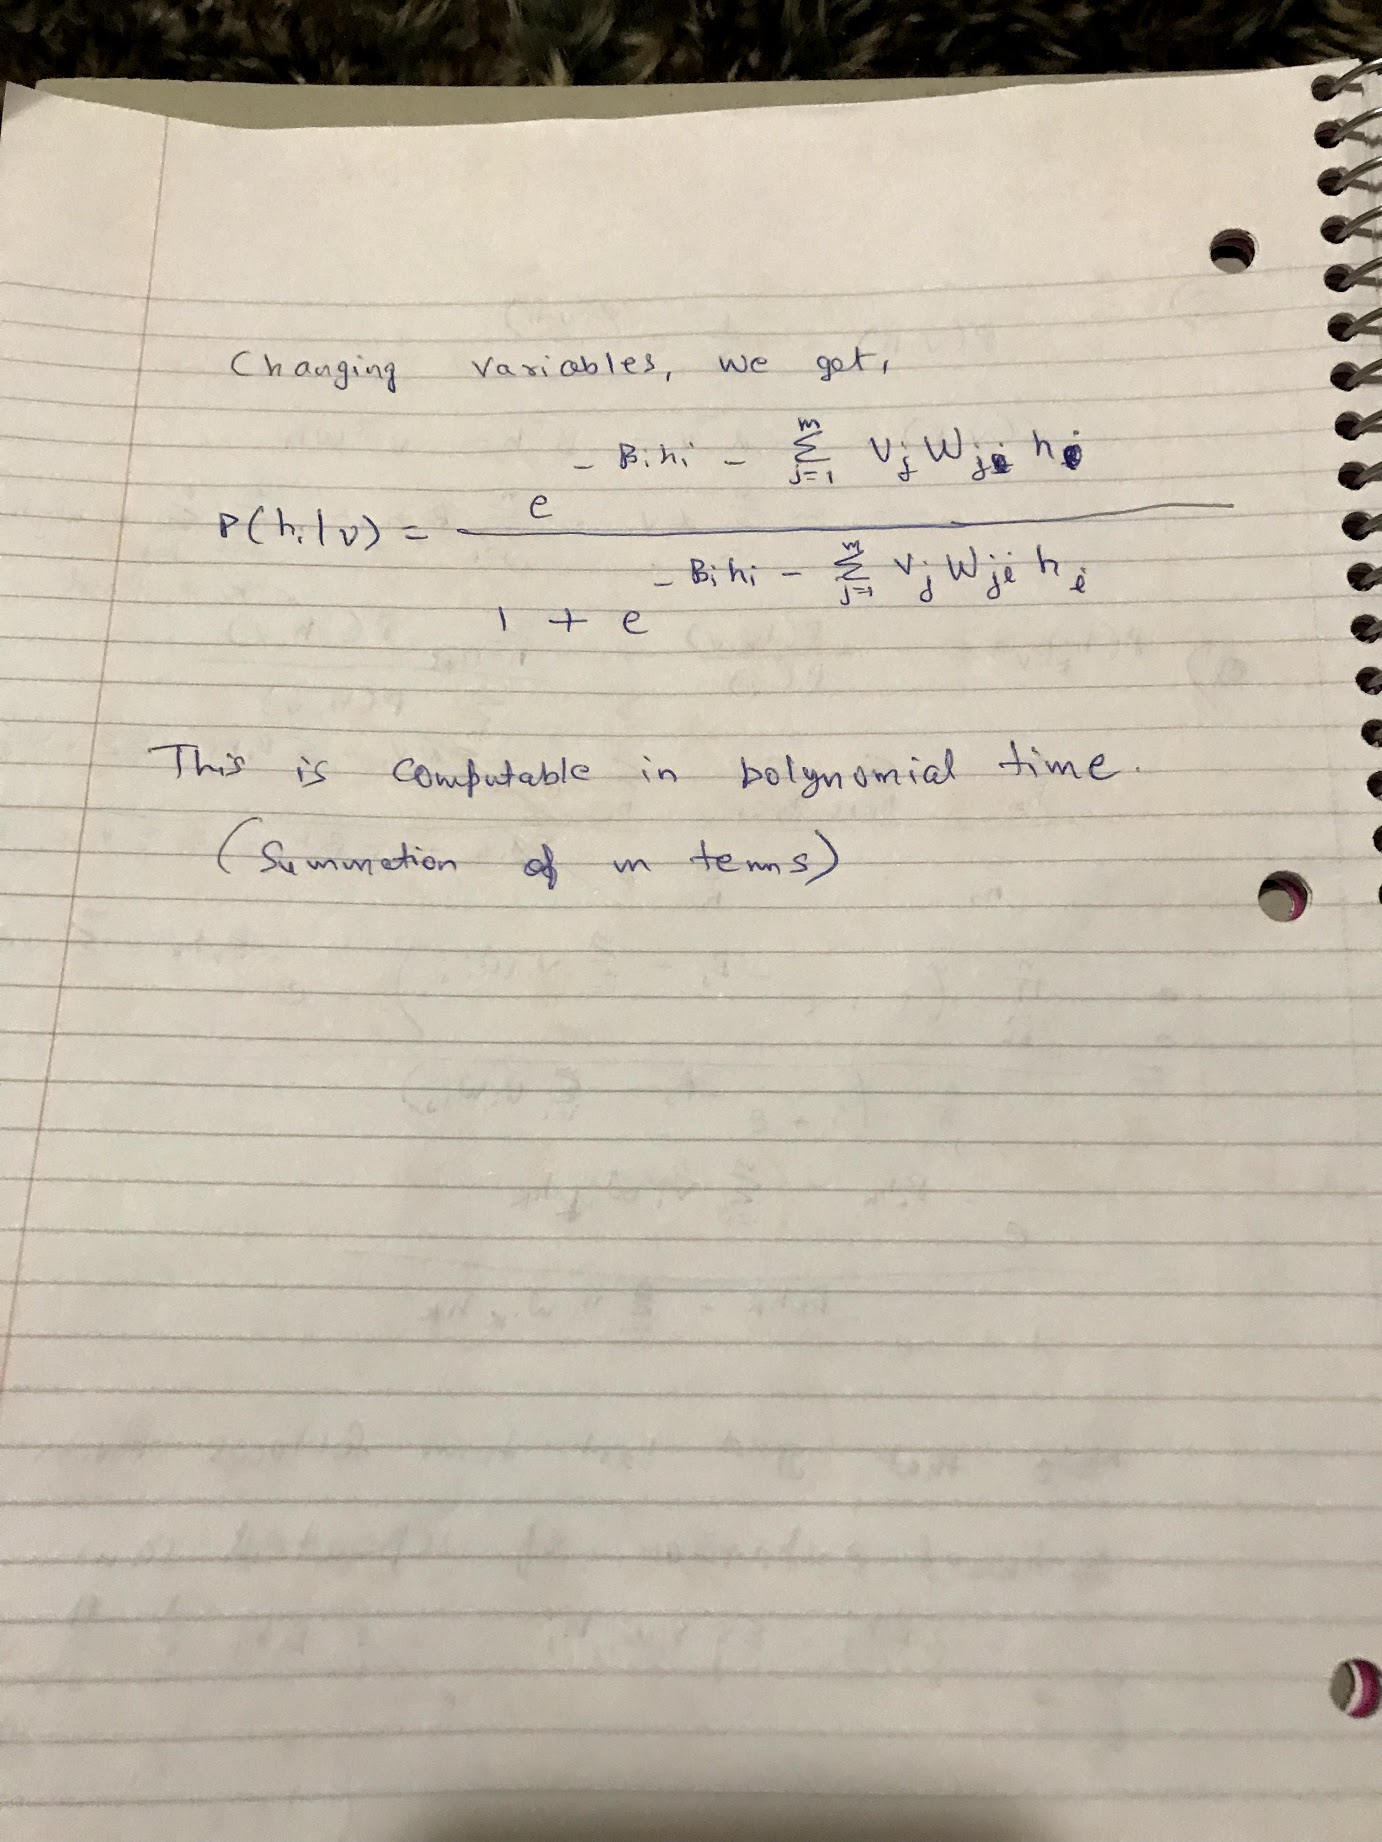 Changing variables, we get,
P(hi|v) = e^{- Bihi - \sum_{j=1}^{m} Vj Wji hi} / 1 + e^{- Bihi - \sum_{j=1}^{m} Vj Wji hi}
This is computable in polynomial time.
(Summation of m terms)